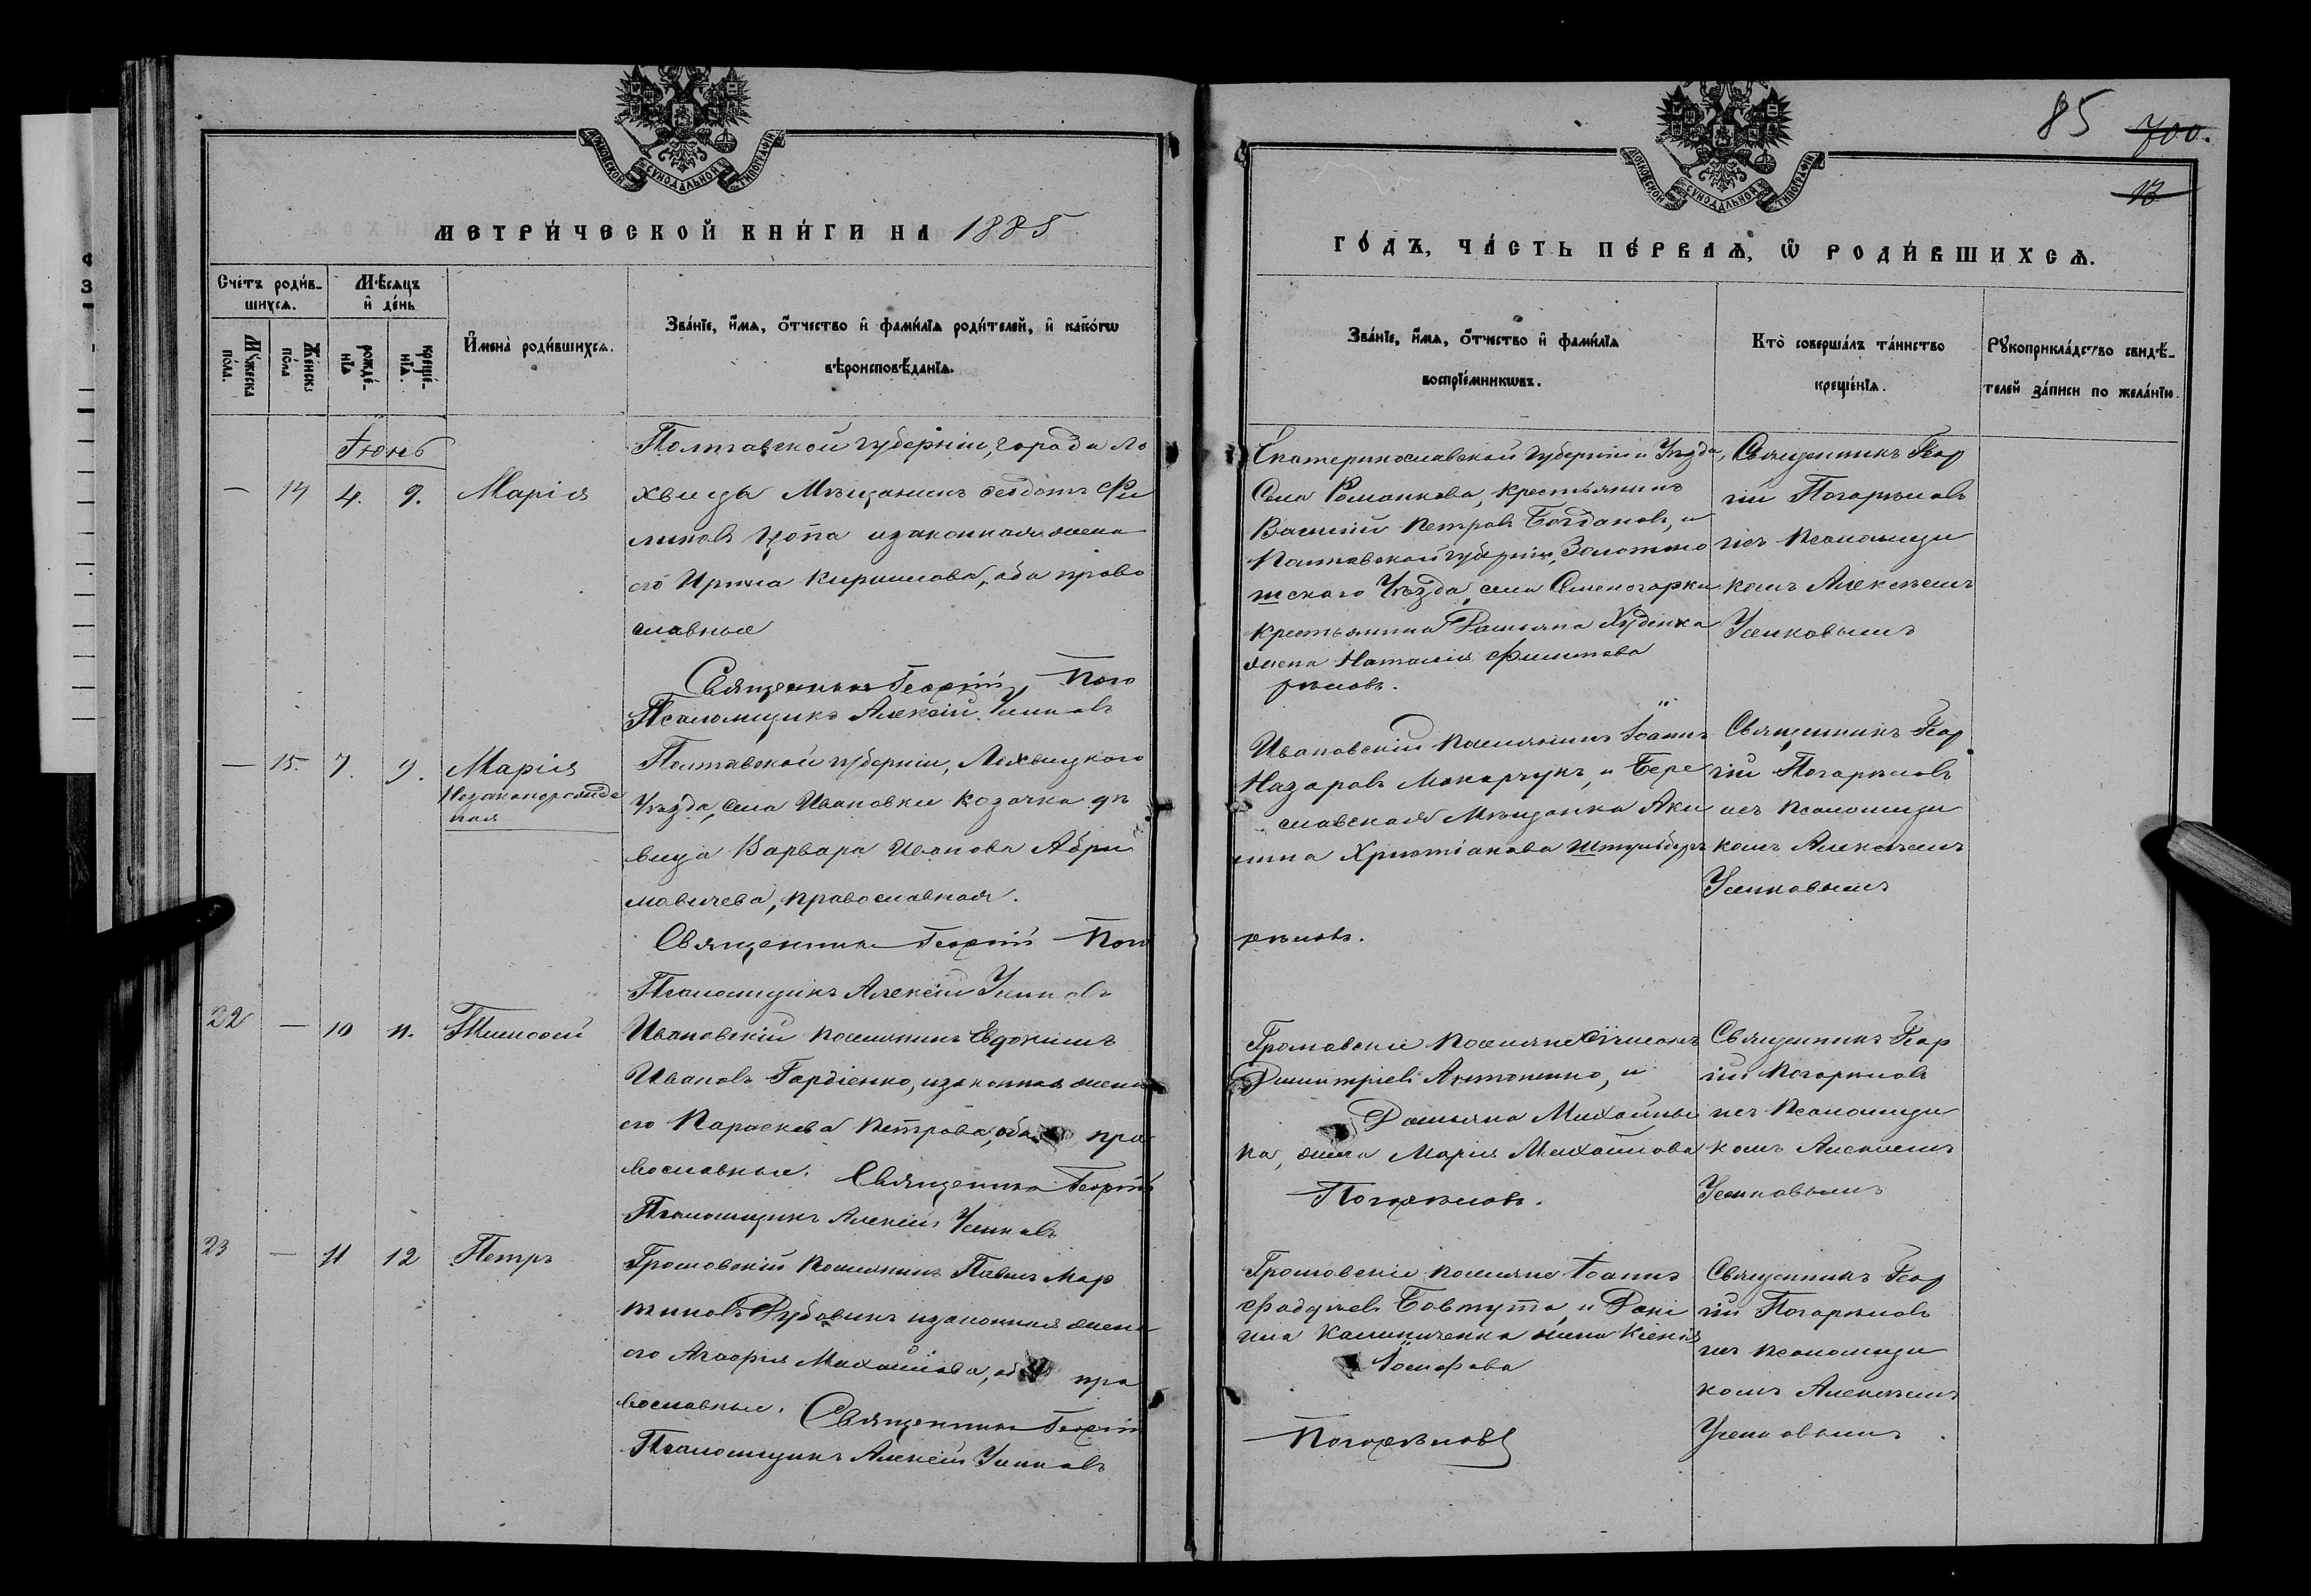 85 700.
13
МОСКОВСКОЙ СУНОДАЛЬНОЙ ТИПОГРАФІИ
МОСКОВСКОЙ СУНОДАЛЬНОЙ ТИПОГРАФІИ
МЕТРИ́ЧЕСКОЙ КНИ́ГИ НА 1885
ГО́ДЪ, ЧА́СТЬ ПЕ́РВАѦ, Ѿ РОДИ́ВШИХСѦ.
Счетъ роди́в-
шихсѧ.
Мѣсѧцъ
и҆ де́нь
Мꙋжеска
по́ла.
Же́нска
по́ла
рожде́-
нїѧ
креще́-
нїѧ.
И҆мена̀ роди́вшихсѧ.
Зва́нїе, и҆́мѧ, ѻ҆́тчество и҆ фами́лїѧ роди́телей, и҆ како́гѡ
вѣроисповѣ́данїѧ.
Зва́нїе, и҆́мѧ, ѻ҆́тчество и҆ фами́лїѧ
воспрїе́мникѡвъ.
Кто̀ соверша́лъ та́инство
креще́нїѧ.
Рꙋкоприкла́дство свидѣ́-
телей за́писи по жела́нїю.
Іюнь
— 14 4. 9. Марія
Полтавской губерніи, города Ло
хвицы Мѣщанинъ Ѳеодотъ Фи
липовъ Цопа изаконная жена
его Ирина Кирилова, оба право
славные
Священникъ Георгій Пого
Псаломщикъ Алексій Усиковъ
Екатеринославской губерніи и Уѣзда,
Села Романкова, крестьянинъ
Василій Петровъ Богдановъ, и
Полтавской губерніи, Золотоно
шскаго Уѣзда, села
крестьянина Худенка
жена Наталія Филипова
рѣловъ.
Священникъ Геор
гій Погорѣловъ
исъ Псаломщи
комъ Алексѣемъ
Усиковымъ
— 15. 7. 9. Марія
Незаконорожде
ная
Полтавской губерніи, Лохвицкого
Уѣзда, села Ивановки Козачка дѣ
вица Варвара Иванова Абра
мовичева, православная.
Священникъ Георгій Пого
Псаломщикъ Алексій Усиковъ
Ивановскій поселянинъ Іоаннъ
Назаровъ Макарчукъ, и Бере
славская Мѣщанка Аки
лина Христіанова
рѣловъ.
Священникъ Геор
гій Погорѣловъ
исъ Псаломщи
комъ Алексѣемъ
Усиковымъ
22 — 10 11. Тимоѳей
Ивановскій поселянинъ Евдокимъ
Ивановъ Гордіенко, изаконная жена
его Параскева Петрова, оба пра
вославные. Священникъ Георгій
Псаломщикъ Алексій Усиковъ
Громовскіе поселяне Сѵмеонъ
Димитріевъ Антоненко, и
Демьяна Михайлен
ка, жена Марія Михайлова
Погорѣловъ.
Священникъ Геор
гій Погорѣловъ
исъ Псаломщи
комъ Алексѣемъ
Усиковымъ
23 — 11 12 Петръ
Громовскій поселянинъ Павелъ Мар
тиновъ Дубовикъ изаконная жена
его Агафія Михайлова, оба пра
вославные. Священникъ Георгій
Псаломщикъ Алексій Усиковъ
Громовскіе поселяне Іоаннъ
Фадѣевъ Бовтута, и Дані
ила Калиниченка жена Ксенія
Іосифова
Погорѣловъ
Священникъ Геор
гій Погорѣловъ
исъ Псаломщи
комъ Алексѣемъ
Усиковымъ